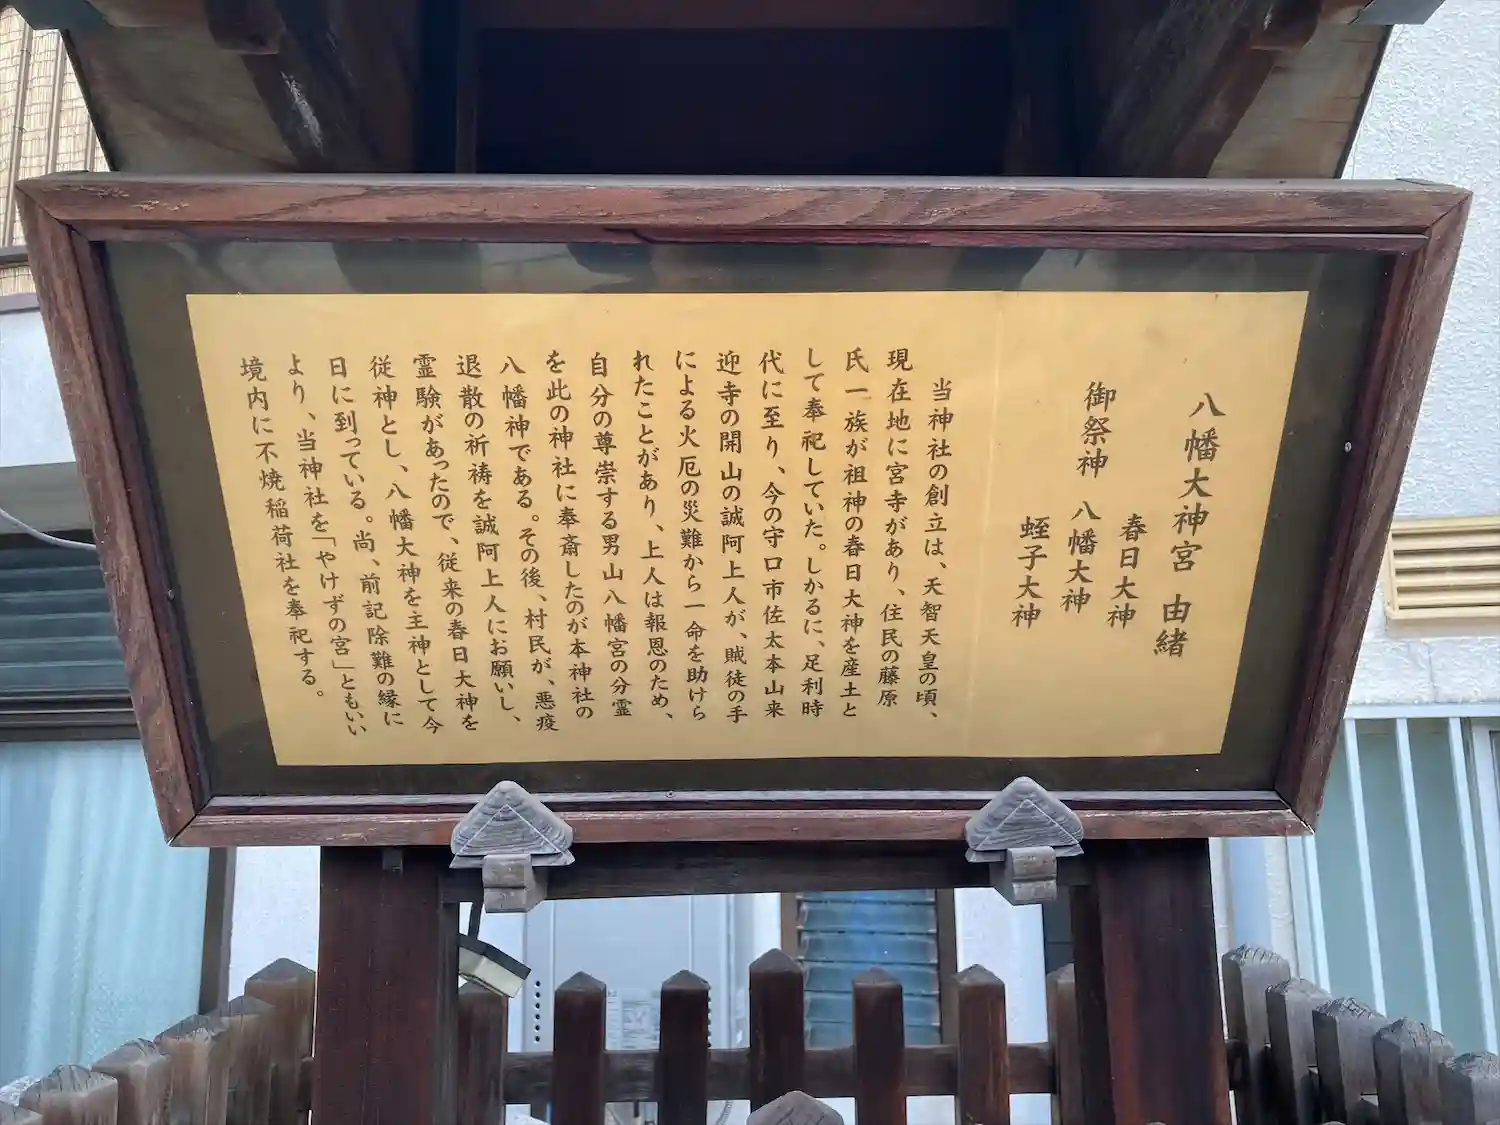 八幡大神宮 由緒
春日大神
御祭神 八幡大神
蛭子大神
当神社の創立は、天智天皇の頃、
現在地に宮寺があり、住民の藤原
氏一族が祖神の春日大神を産土と
して奉祀していた。しかるに、足利時
代に至り、今の守口市佐太本山来
迎寺の開山の誠阿上人が、賊徒の手
による火厄の災難から一命を助けら
れたことがあり、上人は報恩のため、
自分の尊崇する男山八幡宮の分霊
を此の神社に奉斎したのが本神社の
八幡神である。その後、村民が、悪疫
退散の祈祷を誠阿上人にお願いし、
霊験があったので、従来の春日大神を
従神とし、八幡大神を主神として今
日に到っている。尚、前記除難の縁に
より、当神社を「やけずの宮」ともいい
境内に不焼稲荷社を奉祀する。